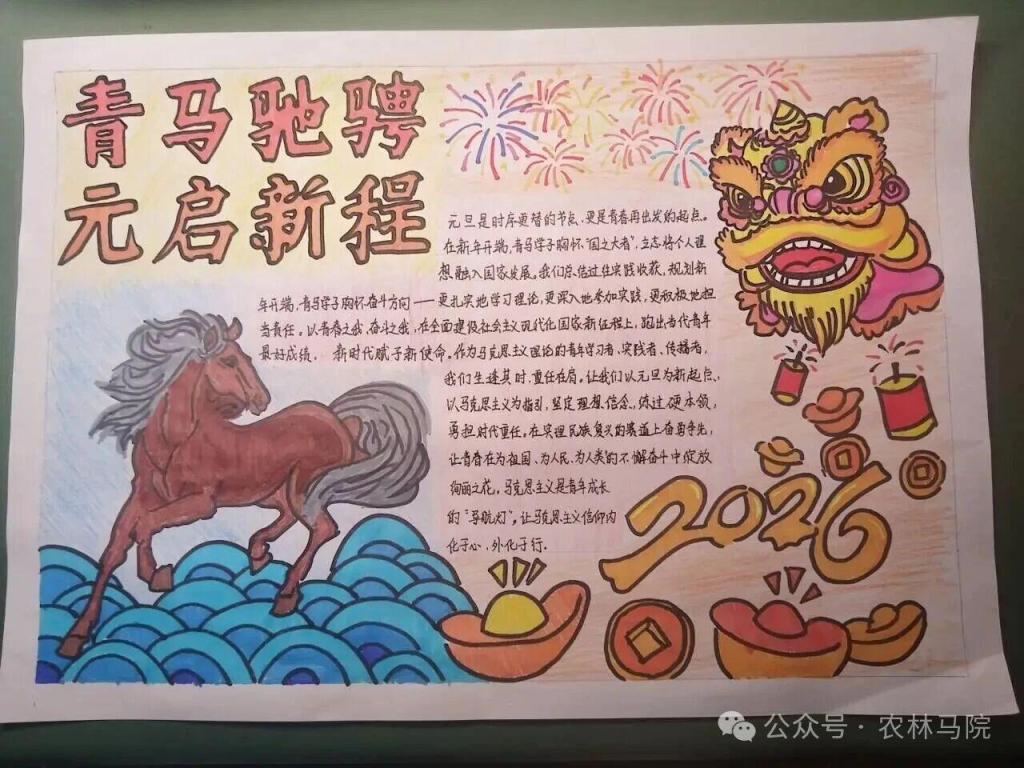 青马驰骋
元启新程
元旦是时序更替的节点、更是青春再出发的起点。
在新年开端,青马学子胸怀“国之大者”,立志将个人理
想融入国家发展。我们总结过往实践收获,规划新
年开端,青马学子胸怀奋斗方向——更扎实地学习理论,更深入地参加实践,更积极地担
当责任。以青春之我,奋斗之我,在全面建设社会主义现代化国家新征程上,跑出当代青年
最好成绩. 新时代赋予新使命。作为马克思主义理论的青年学习者、实践者、传播者,
我们生逢其时、重任在肩。让我们以元旦为新起点、
以马克思主义为指引,坚定理想信念、练过硬本领,
勇担时代重任。在实现民族复兴的赛道上奋勇争先,
让青春在为祖国、为人民、为人类的不懈奋斗中绽放
绚丽之花。马克思主义是青年成长
的“导航灯”。让马克思主义信仰内
化于心、外化于行.
2026
公众号·农林马院